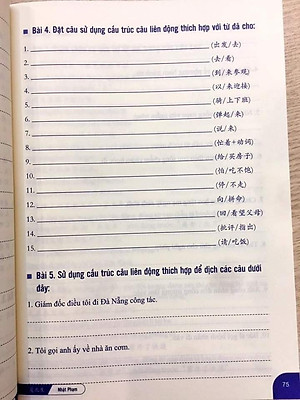 Bài 4. Đặt câu sử dụng cấu trúc câu liên động thích hợp với từ đã cho:
1. (出发/去)
2. (去/看)
3. (到/来参观)
4. (以/来迎接)
5. (骑/上下班)
6. (弹起/来)
7. (说/来)
8. (忙着+动词)
9. (给/买房子)
10. (怕/吃不饱)
11. (停/不走)
12. (向/拼命)
13. (回/看望父母)
14. (批评/指出)
15. (请/吃饭)
Bài 5. Sử dụng cấu trúc câu liên động thích hợp để dịch các câu dưới đây:
1. Giám đốc điều tôi đi Đà Nẵng công tác.
2. Tôi gọi anh ấy về nhà ăn cơm.
Nhật Phạm
75